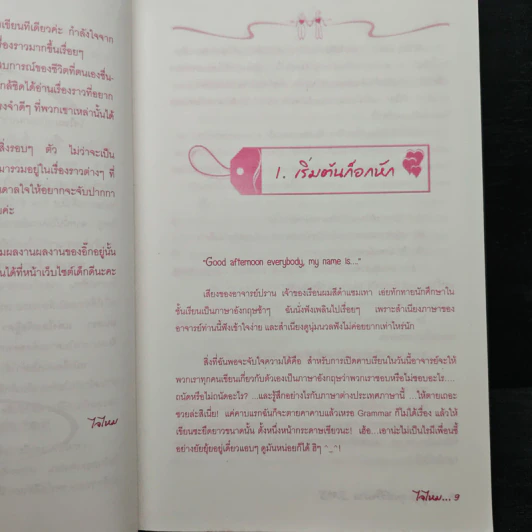 เขียนทีเดียวค่ะ กำลังใจจาก
รื่องราวมากขึ้นเรื่อยๆ
บการณ์ของชีวิตที่ตนเองชื่น-
กล้ชิดได้อ่านเรื่องราวที่อยาก
งจำดีๆ ที่พวกเขาเหล่านั้นได้
สิ่งรอบๆ ตัว ไม่ว่าจะเป็น
มารวมอยู่ในเรื่องราวต่างๆ ที่
ดาลใจให้อยากจะจับปากกา
ค่ะ
มผลงานผลงานของอี๊กอยู่นั้น
นได้ที่หน้าเว็บไซต์เด็กดีนะคะ
ใจไหม
1. เริ่มต้นก็อกหัก
"Good afternoon everybody, my name is...."
เสียงของอาจารย์ปราน เจ้าของเรือนผมสีดำแซมเทา เอ่ยทักทายนักศึกษาใน
ชั้นเรียนเป็นภาษาอังกฤษช้าๆ ฉันนั่งฟังเพลินไปเรื่อยๆ เพราะสำเนียงภาษาของ
อาจารย์ท่านนี้ฟังเข้าใจง่าย และสำเนียงดูนุ่มนวลฟังไม่ค่อยยากเท่าไหร่นัก
สิ่งที่ฉันพอจะจับใจความได้คือ สำหรับการเปิดคาบเรียนในวันนี้อาจารย์จะให้
พวกเราทุกคนเขียนเกี่ยวกับตัวเองเป็นภาษาอังกฤษว่าพวกเราชอบหรือไม่ชอบอะไร...
ถนัดหรือไม่ถนัดอะไร? ...และรู้สึกอย่างไรกับภาษาต่างประเทศภาษานี้ ...ให้ตายเถอะ
ซวยล่ะสิเนี่ย! แค่คาบแรกฉันก็จะตายคาคาบแล้วเหรอ Grammar ก็ไม่ได้เรื่อง แล้วให้
เขียนซะยืดยาวขนาดนั้น ตั้งหนึ่งหน้ากระดาษเชียวนะ! เฮ้อ...เอาน่ะไม่เป็นไรมีเพื่อนซี้
อย่างยัยยุ้ยอยู่เดี๋ยวแอบๆ ดูมันหน่อยก็ได้ ฮิๆ ^_^!
ใจไหม... 9